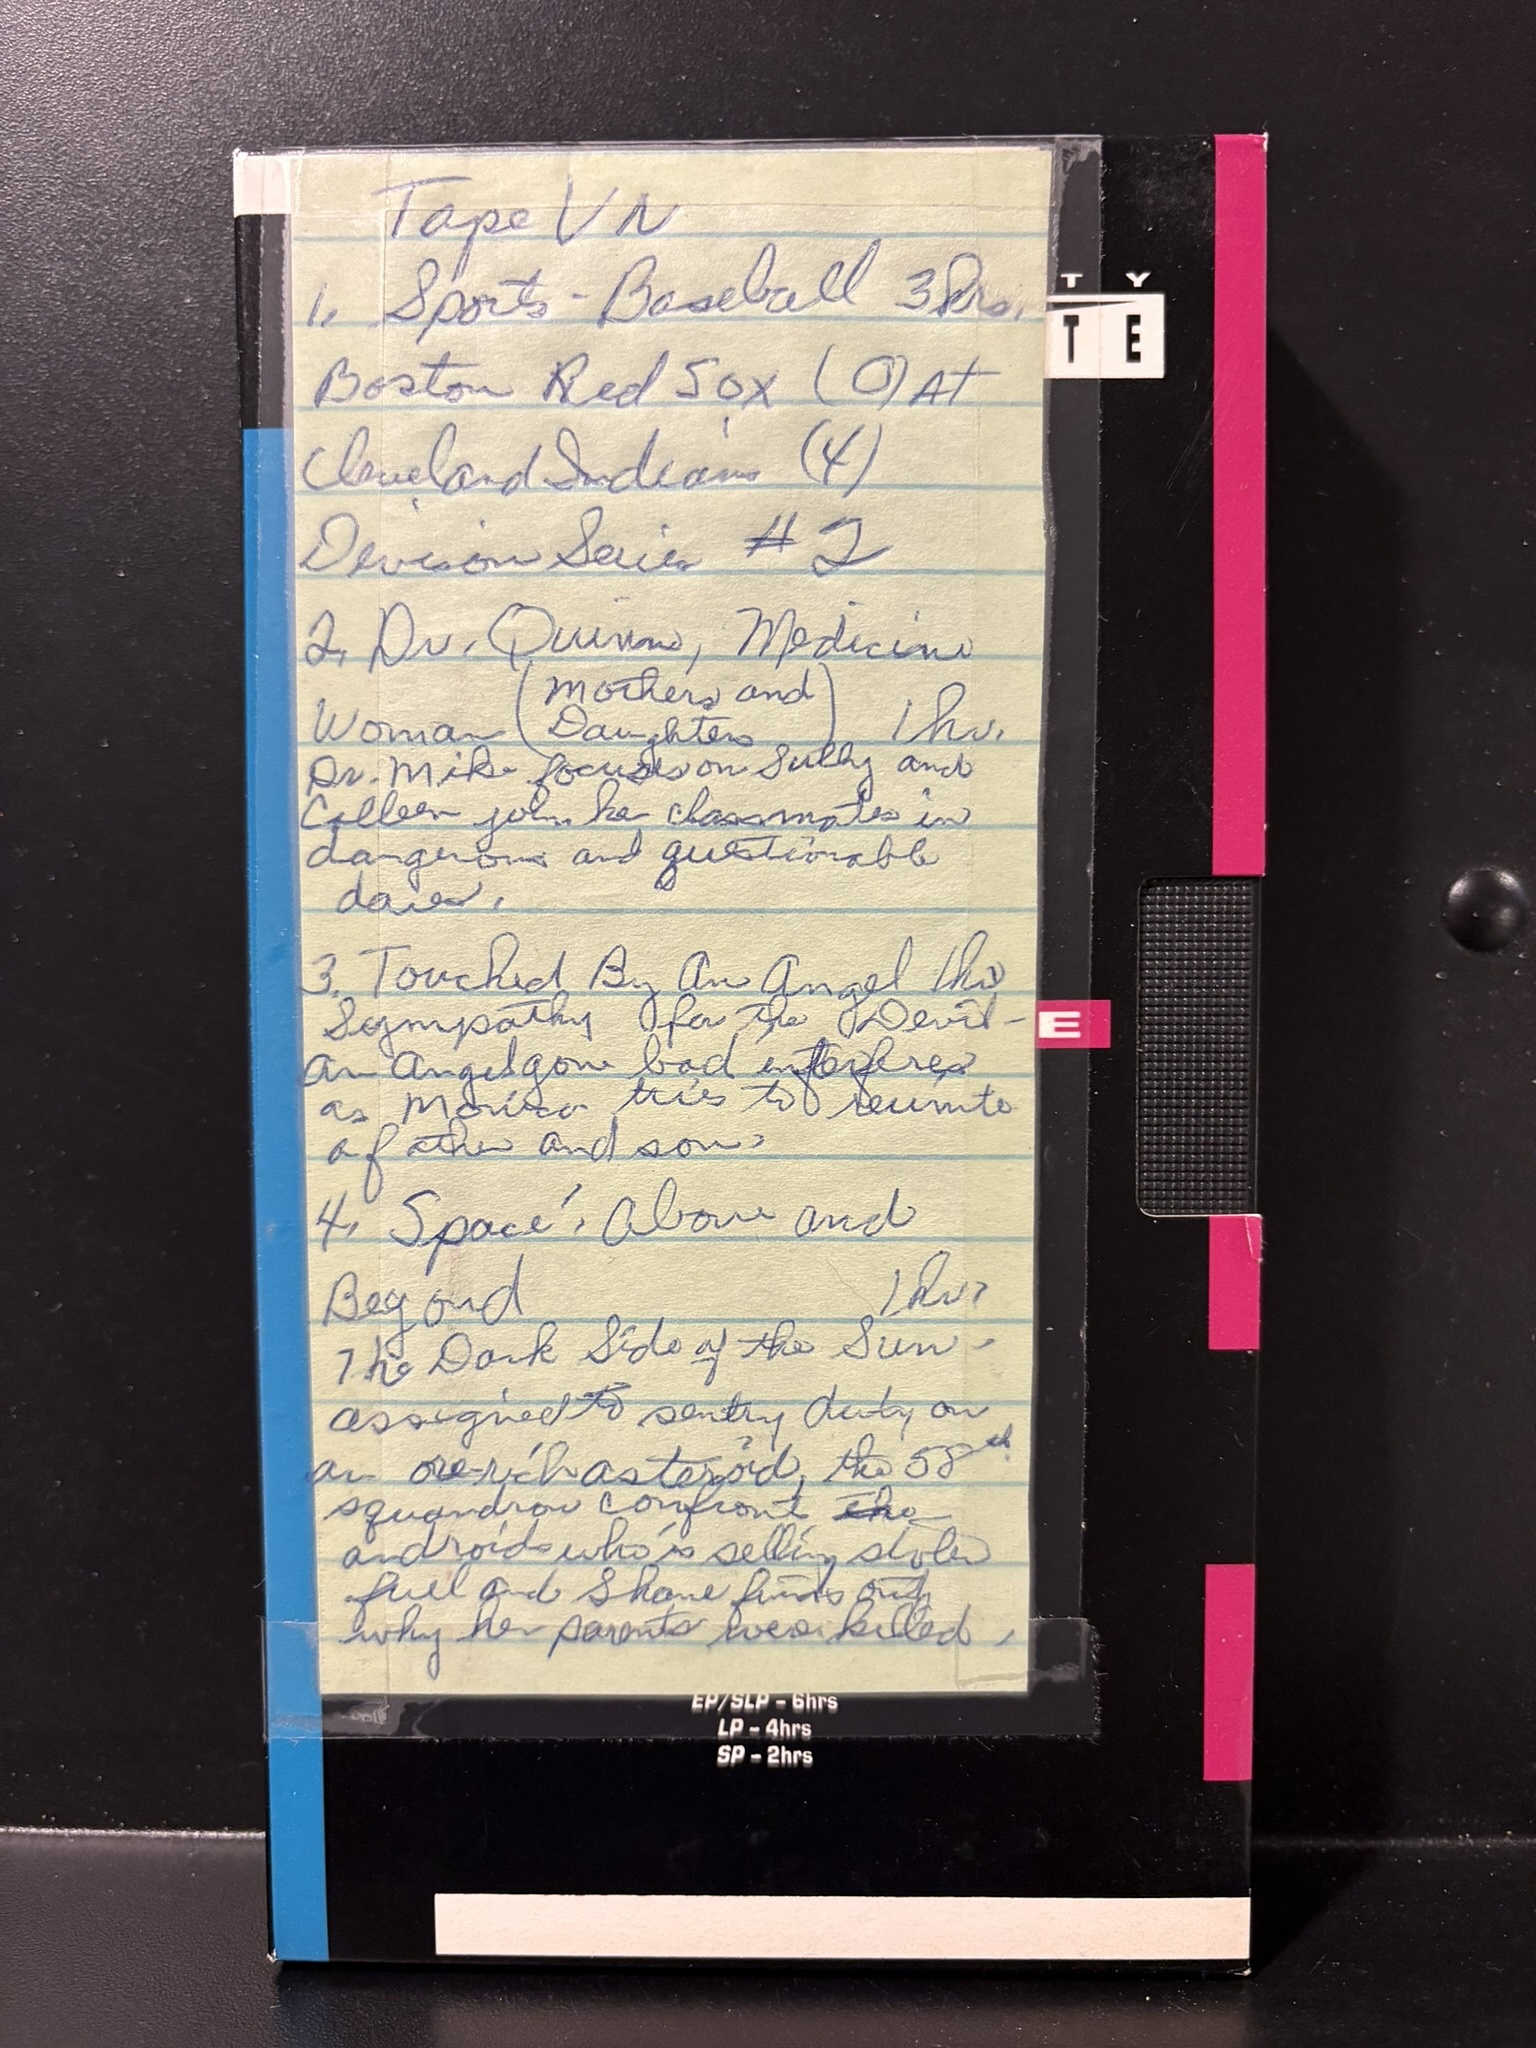 Tape VN
1. Sports - Baseball 3 hrs.
Boston Red Sox (0) At
Cleveland Indians (4)
Division Series #2
2. Dr. Quinn, Medicine
Woman (Mothers and Daughters) 1 hr.
Dr. Mike focuses on Sully and
Colleen join her classmates in
dangerous and questionable
dares.
3. Touched By An Angel 1 hr
Sympathy for the Devil -
An Angel gone bad interferes
as Monica tries to reunite
a father and son.
4. Space: Above and
Beyond 1 hr.
The Dark Side of the Sun -
assigned to sentry duty on
an ore-rich asteroid, the 58th
squandron confront the
androids who's selling stolen
fuel and Shane finds out
why her parents were killed.
T Y
T E
E
EP/SLP - 6hrs
LP - 4hrs
SP - 2hrs